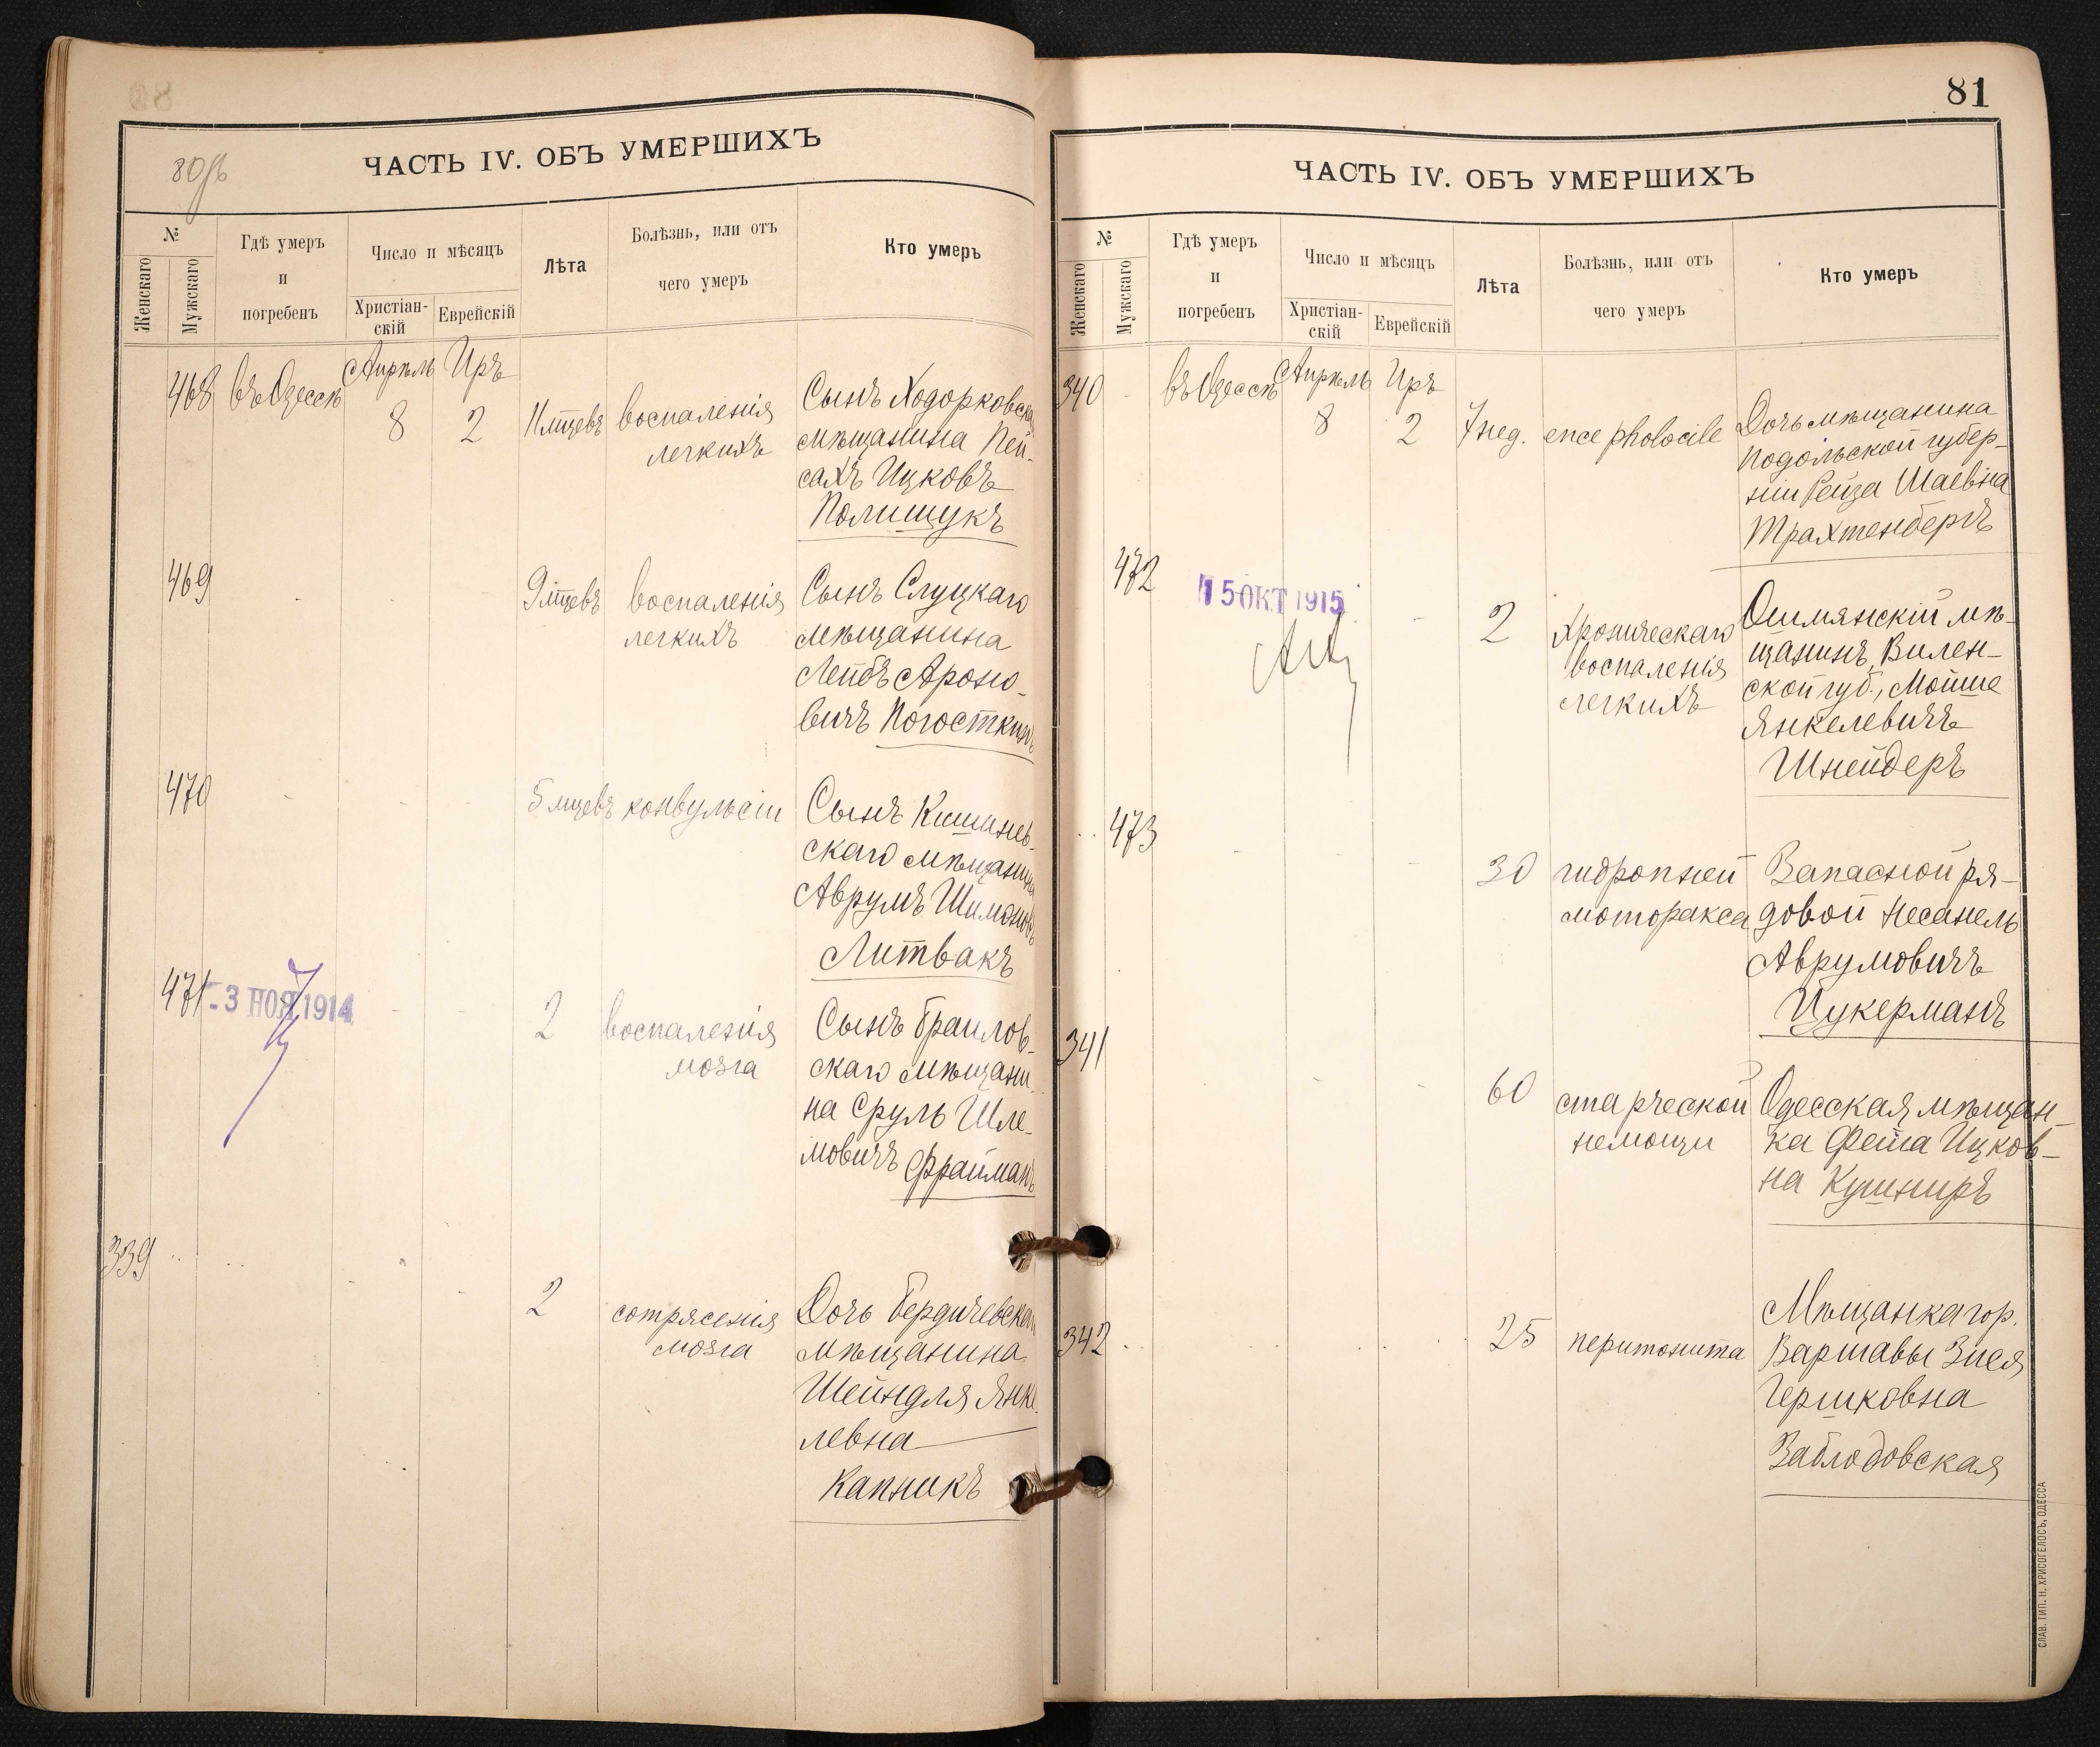 80об
ЧАСТЬ IV. ОБЪ УМЕРШИХЪ
№
Женскаго
Мужскаго
Гдѣ умеръ
и
погребенъ
Число и мѣсяцъ
Христіан-
скій
Еврейскій
Лѣта
Болѣзнь, или отъ
чего умеръ
Кто умеръ
468 въ Одессѣ Апрѣль Иръ
8 2 11 мцевъ воспаленія
легкихъ
Сынъ Ходорковска
мѣщанина Пей-
сахъ Ицковъ
Полищукъ
469 9 мцевъ воспаленія
легкихъ
Сынъ Слуцкаго
мѣщанина
Лейбъ Ароно-
вичъ Погосткинъ
470 5 мцевъ конвульсіи
Сынъ Кишинев-
скаго мѣщанина
Аврумъ Шимоновъ
Литвакъ
471 -3 НОЯ 1914 2 воспаленія
мозга
Сынъ Браилов-
скаго мѣщани-
на Сруль Шле-
мовичъ Фрайманъ
339 2 сотрясенія
мозга
Дочь Бердичевскаго
мѣщанина
Шейндля Янке-
левна
Капникъ
81
ЧАСТЬ IV. ОБЪ УМЕРШИХЪ
№
Женскаго
Мужскаго
Гдѣ умеръ
и
погребенъ
Число и мѣсяцъ
Христіан-
скій
Еврейскій
Лѣта
Болѣзнь, или отъ
чего умеръ
Кто умеръ
340 въ Одессѣ Апрѣль Иръ
8 2 7 нед. encepholocile
Дочь мѣщанина
Подольской губер-
ніи Рейза Шаевна
Трахтенбергъ
472 15 ОКТ 1915 2 Хроническаго
воспаленія
легкихъ
Ошмянскій мѣ-
щанинъ, Вилен-
ской губ., Мойше
Янкелевичъ
Шнейдеръ
473 30 гидропней
моторакса
Запасной ря-
довой Несанель
Аврумовичъ
Цукерманъ
341 60 старческой
немощи
Одесская мѣщан-
ка Фейга Ицков-
на Кушниръ
342 25 перитонита
Мѣщанка гор.
Варшавы Знея
Гершковна
Заблодовская
СЛАВ. ТИП. Н. ХРИСОГЕЛОСЪ, ОДЕССА